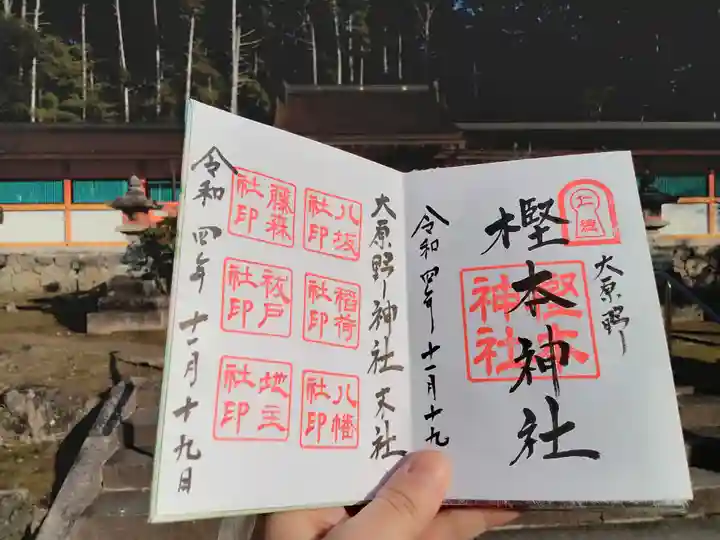 大原野
樫本神社
樫本
神社
令和四年十一月十九
大原野神社末社
八坂
社印
稲荷
社印
八幡
社印
藤森
社印
祓戸
社印
地主
社印
令和四年十一月十九日